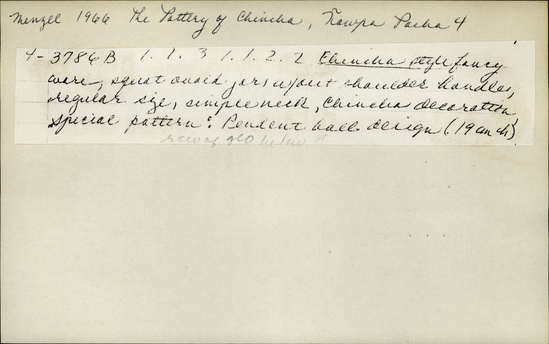 Menzel 1966 The Pottery of Chincha, Ñawpa Pacha 4
4-3786B 1. 1. 3 1. 1. 2. 2 Chincha style fancy
ware, squat ovoid jars w/out shoulder handles,
regular size, simple neck, Chincha decoration,
special pattern: Pendent ball design (19 cm h)